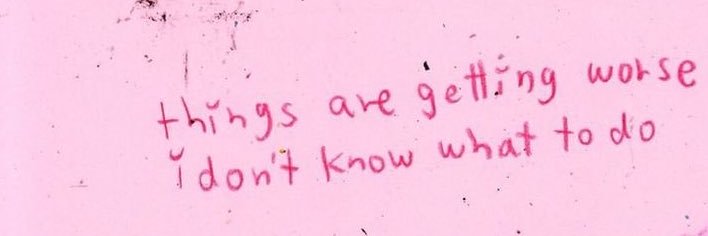 things are getting worse
i don't know what to do